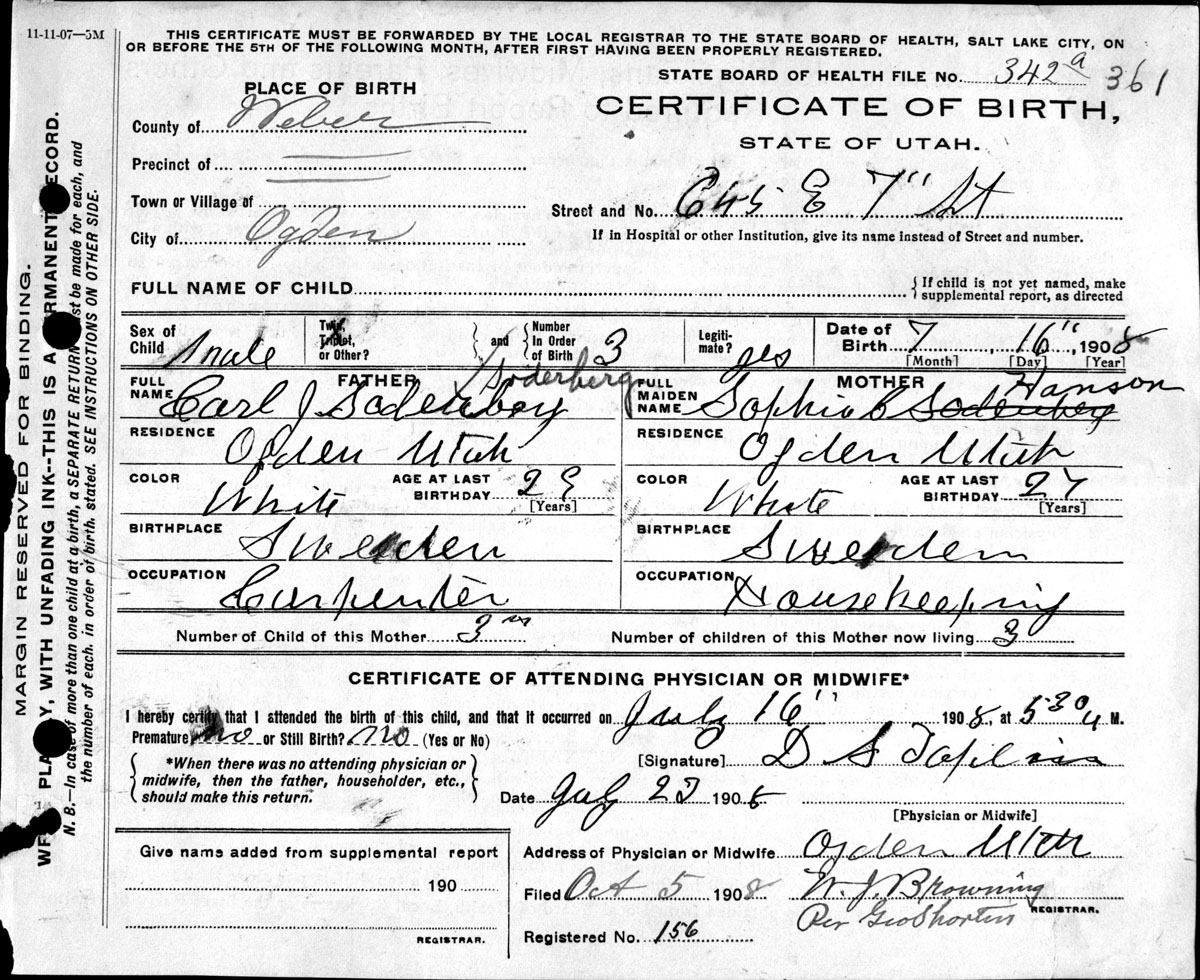 11-11-07—5M
THIS CERTIFICATE MUST BE FORWARDED BY THE LOCAL REGISTRAR TO THE STATE BOARD OF HEALTH, SALT LAKE CITY, ON
OR BEFORE THE 5TH OF THE FOLLOWING MONTH, AFTER FIRST HAVING BEEN PROPERLY REGISTERED.
STATE BOARD OF HEALTH FILE No. 342a 361
PLACE OF BIRTH
CERTIFICATE OF BIRTH,
STATE OF UTAH.
County of Weber
Precinct of
Town or Village of
City of Ogden
Street and No. E 7" St
If in Hospital or other Institution, give its name instead of Street and number.
FULL NAME OF CHILD { If child is not yet named, make
supplemental report, as directed
Sex of Child male
Twin, Triplet, or Other? } and { Number In Order of Birth 3
Legiti-mate? yes
Date of Birth 7, 16", 1908
[Month] [Day] [Year]
FULL NAME FATHER Soderberg
Carl J
RESIDENCE
Ogden Utah
COLOR White AGE AT LAST BIRTHDAY 29 [Years]
BIRTHPLACE
Sweden
OCCUPATION
Carpenter
FULL MAIDEN NAME MOTHER Hanson
Sophia C
RESIDENCE
Ogden Utah
COLOR White AGE AT LAST BIRTHDAY 27 [Years]
BIRTHPLACE
Sweden
OCCUPATION
Housekeeping
Number of Child of this Mother 3 Number of children of this Mother now living 3
CERTIFICATE OF ATTENDING PHYSICIAN OR MIDWIFE*
I hereby certify that I attended the birth of this child, and that it occurred on July 16" 1908, at 530 M.
Premature no or Still Birth? no (Yes or No)
{ *When there was no attending physician or
midwife, then the father, householder, etc.,
should make this return. }
[Signature] D S
Date July 1908
[Physician or Midwife]
Give name added from supplemental report
190
REGISTRAR.
Address of Physician or Midwife Ogden Utah
Filed Oct 5 1908 W. J. Browning
REGISTRAR.
Per Geo Shorten
Registered No. 156
MARGIN RESERVED FOR BINDING.
PLAINLY, WITH UNFADING INK--THIS IS A PERMANENT RECORD.
N. B.—In case of more than one child at a birth, a SEPARATE RETURN must be made for each, and
the number of each, in order of birth, stated. SEE INSTRUCTIONS ON OTHER SIDE.